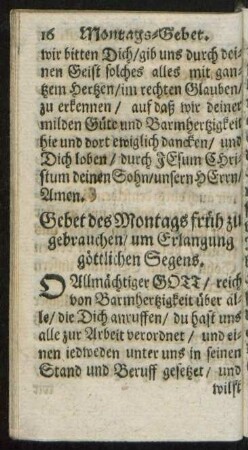 16 Montags-Gebet.
wir bitten Dich/gib uns durch dei-
nen Geist solches alles mit gan-
tzem Hertzen/im rechten Glauben/
zu erkennen / auf daß wir deiner
milden Güte und Barmhertzigkeit
hie und dort ewiglich dancken/ und
Dich loben / durch JEsum CHri-
stum deinen Sohn/unsern HErrn/
Amen.
Gebet des Montags früh zu
gebrauchen/ um Erlangung
göttlichen Segens.
O Allmächtiger GOTT/ reich
von Barmhertzigkeit über al-
le/ die Dich anruffen/ du hast uns
alle zur Arbeit verordnet / und ei-
nen iedweden unter uns in seinen
Stand und Beruff gesetzet/ und
wilst